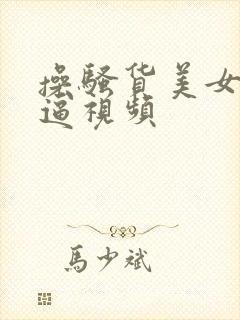 操騷貨美女
逼視頻
馬少斌